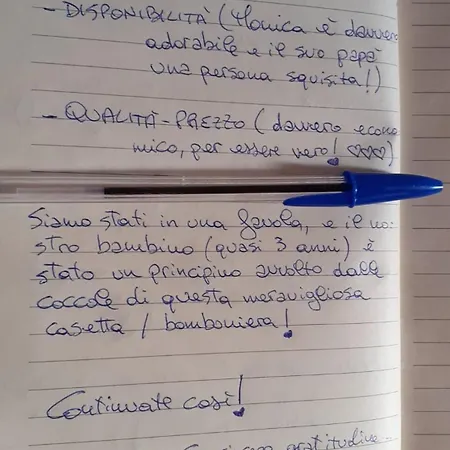 - DISPONIBILITÀ (Monica è davvero
adorabile e il suo papà
una persona squisita!)
- QUALITÀ-PREZZO (davvero econo
mico, per essere vero! ♡♡♡)
Siamo stati in una favola, e il no-
stro bambino (quasi 3 anni) è
stato un principino avvolto dalle
coccole di questa meravigliosa
casetta / bomboniera!
Continuate così!
gratitudine